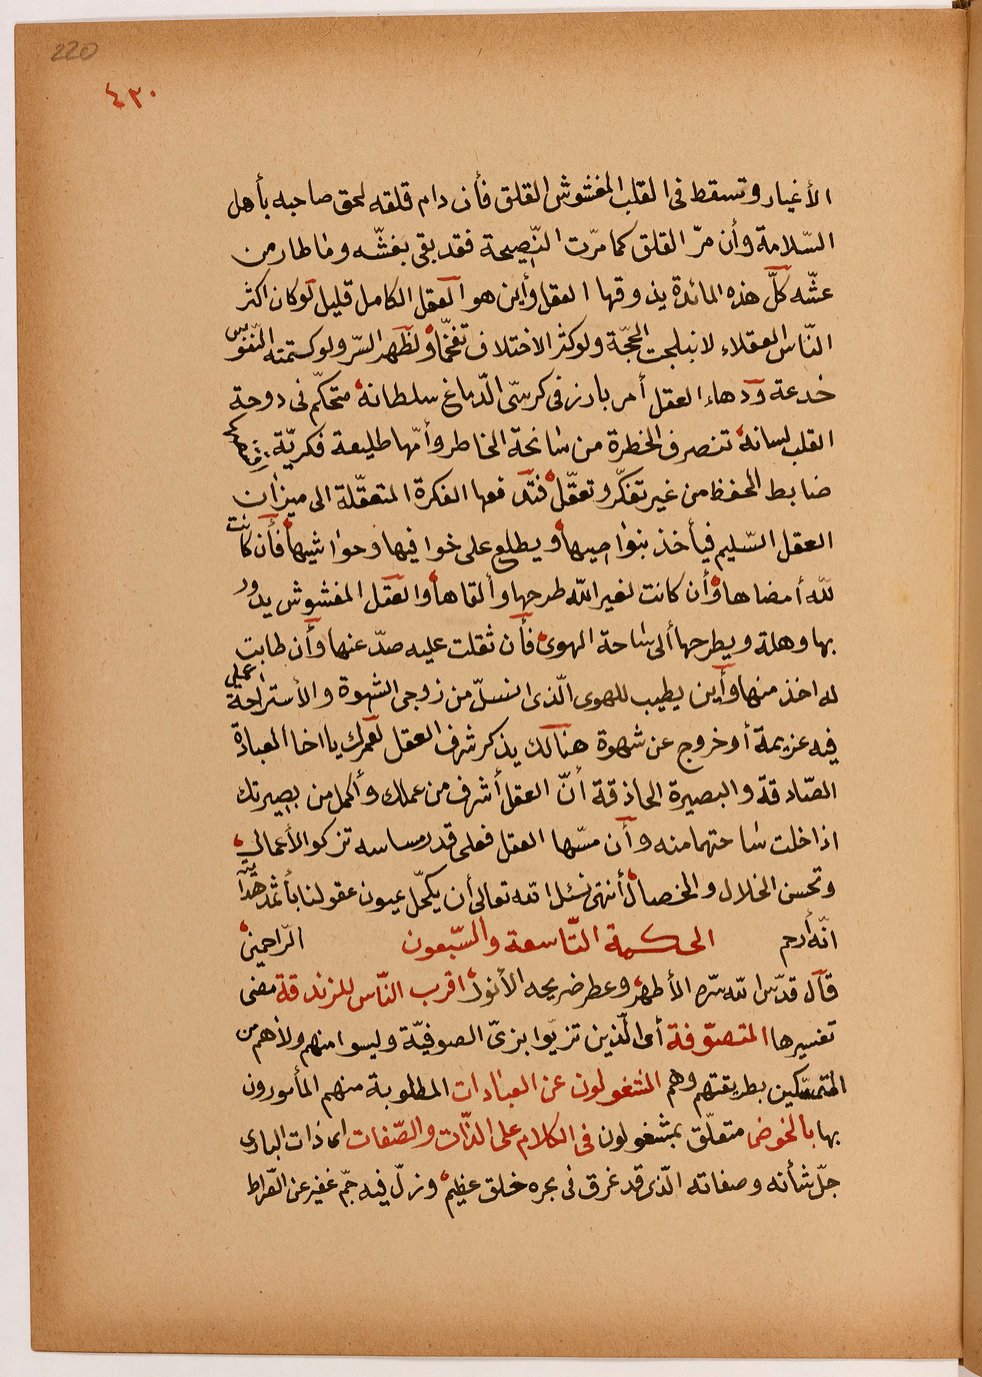 220
٤٢٠
الأغيار وتسقط فى القلب المغشوش القلق فأن دام قلقه لحق صاحبه بأهل
السّلامة وأن مرّ القلق كما مرّت النّصيحة فقد بقى بغشّه وما طار من
عشّه كلّ هذه المائدة يذوقها العقل وأين هو العقل الكامل قليل لو كان اكثر
النّاس العقلاء لانبلجت الحجّة ولو كثر الاختلاف تفخّما ولظهر السّر ولو كتمته النّفوس
خدعة ودهاء العقل أمر بارز فى كرسّى الدّماغ سلطانه متحكّم فى دوحة
القلب لسانه تنصرف الخطرة من سانحة الخاطر وأمّها طليعة فكريّة
ضابط الحفظ من غير تفكّر وتعقّل فتدفعها الفكرة المتعقّلة الى ميزان
العقل السّليم فيأخذ بنواصيها ويطلع على خوافيها وحواشيها فأن كانت
لله أمضاها وأن كانت لغير الله طرحها وألقاها والعقل المغشوش يدور
بها وهلة ويطرحها ألى ساحة الهوى فأن ثقلت عليه صدّ عنها وأن طابت
له اخذ منها وأين يطيب للهوى الّذى انسلّ من زوجى الشهوة والأستراحة عمل
فيه عزيمة أو خروج عن شهوة هنالك يذكر شرف العقل لعمرك يا اخا العبادة
الصّادقة والبصيرة الحاذقة أنّ العقل أشرف من عملك وأكمل من بصيرتك
اذا خلت ساحتهما منه وأن مسّها العقل فعلى قدر مساسه تزكو الأعمال
وتحسن الخلال والخصال أنتهى نسئل الله تعالى أن يكحّل عيون عقولنا بأثمد هدايته
انّه أرحم الرّاحمين
الحكمة التّاسعة والسّبعون
قال قدّس الله سرّه الأطهر وعطر ضريحه الأنور اقرب النّاس للزندقة مضى
تفسيرها المتصوّفة أى الّذين تزيّوا بزىّ الصوفيّة وليسوا منهم ولاهم من
المتمسّكين بطريقتهم وهم المشغولون عن العبادات المطلوبة منهم المأمورون
بها بالخوض متعلّق بمشغولون فى الكلام على الذّات والصّفات اى ذات البارى
جلّ شأنه وصفاته الّذى قد غرق فى بحره خلق عظيم وزلّ فيه جمّ غفير عن الصّراط